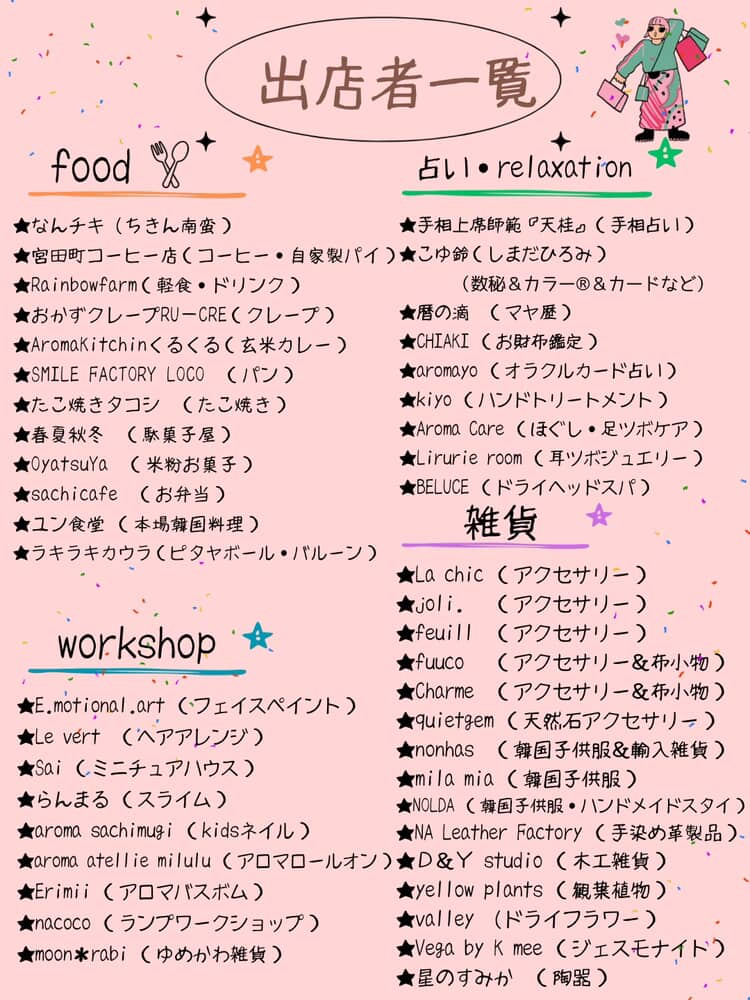 出店者一覧
food
★なんチキ（ちきん南蛮）
★宮田町コーヒー店（コーヒー・自家製パイ）
★Rainbowfarm（軽食・ドリンク）
★おかずクレープRU－CRE（クレープ）
★AromaKitchinくるくる（玄米カレー）
★SMILE FACTORY LOCO （パン）
★たこ焼きタコシ （たこ焼き）
★春夏秋冬 （駄菓子屋）
★OyatsuYa （米粉お菓子）
★sachicafe （お弁当）
★ユン食堂（本場韓国料理）
★ラキラキカウラ（ピタヤボール・バルーン）
workshop
★E.motional.art（フェイスペイント）
★Le vert （ヘアアレンジ）
★Sai（ミニチュアハウス）
★らんまる（スライム）
★aroma sachimugi（kidsネイル）
★aroma atellie milulu（アロマロールオン）
★Erimii（アロマバスボム）
★nacoco（ランプワークショップ）
★moon＊rabi（ゆめかわ雑貨）
占い・relaxation
★手相上席師範『天桂』（手相占い）
★こゆ鈴（しまだひろみ）
（数秘＆カラー®＆カードなど）
★暦の滴 （マヤ歴）
★CHIAKI（お財布鑑定）
★aromayo（オラクルカード占い）
★kiyo（ハンドトリートメント）
★Aroma Care（ほぐし・足ツボケア）
★Lirurie room（耳ツボジュエリー）
★BELUCE（ドライヘッドスパ）
雑貨
★La chic（アクセサリー）
★joli. （アクセサリー）
★feuill （アクセサリー）
★fuuco （アクセサリー＆布小物）
★Charme （アクセサリー＆布小物）
★quietgem（天然石アクセサリー）
★nonhas （韓国子供服&輸入雑貨）
★mila mia（韓国子供服）
★NOLDA（韓国子供服・ハンドメイドスタイ）
★NA Leather Factory（手染め革製品）
★D＆Y studio（木工雑貨）
★yellow plants（観葉植物）
★valley （ドライフラワー）
★Vega by K mee（ジェスモナイト）
★星のすみか （陶器）